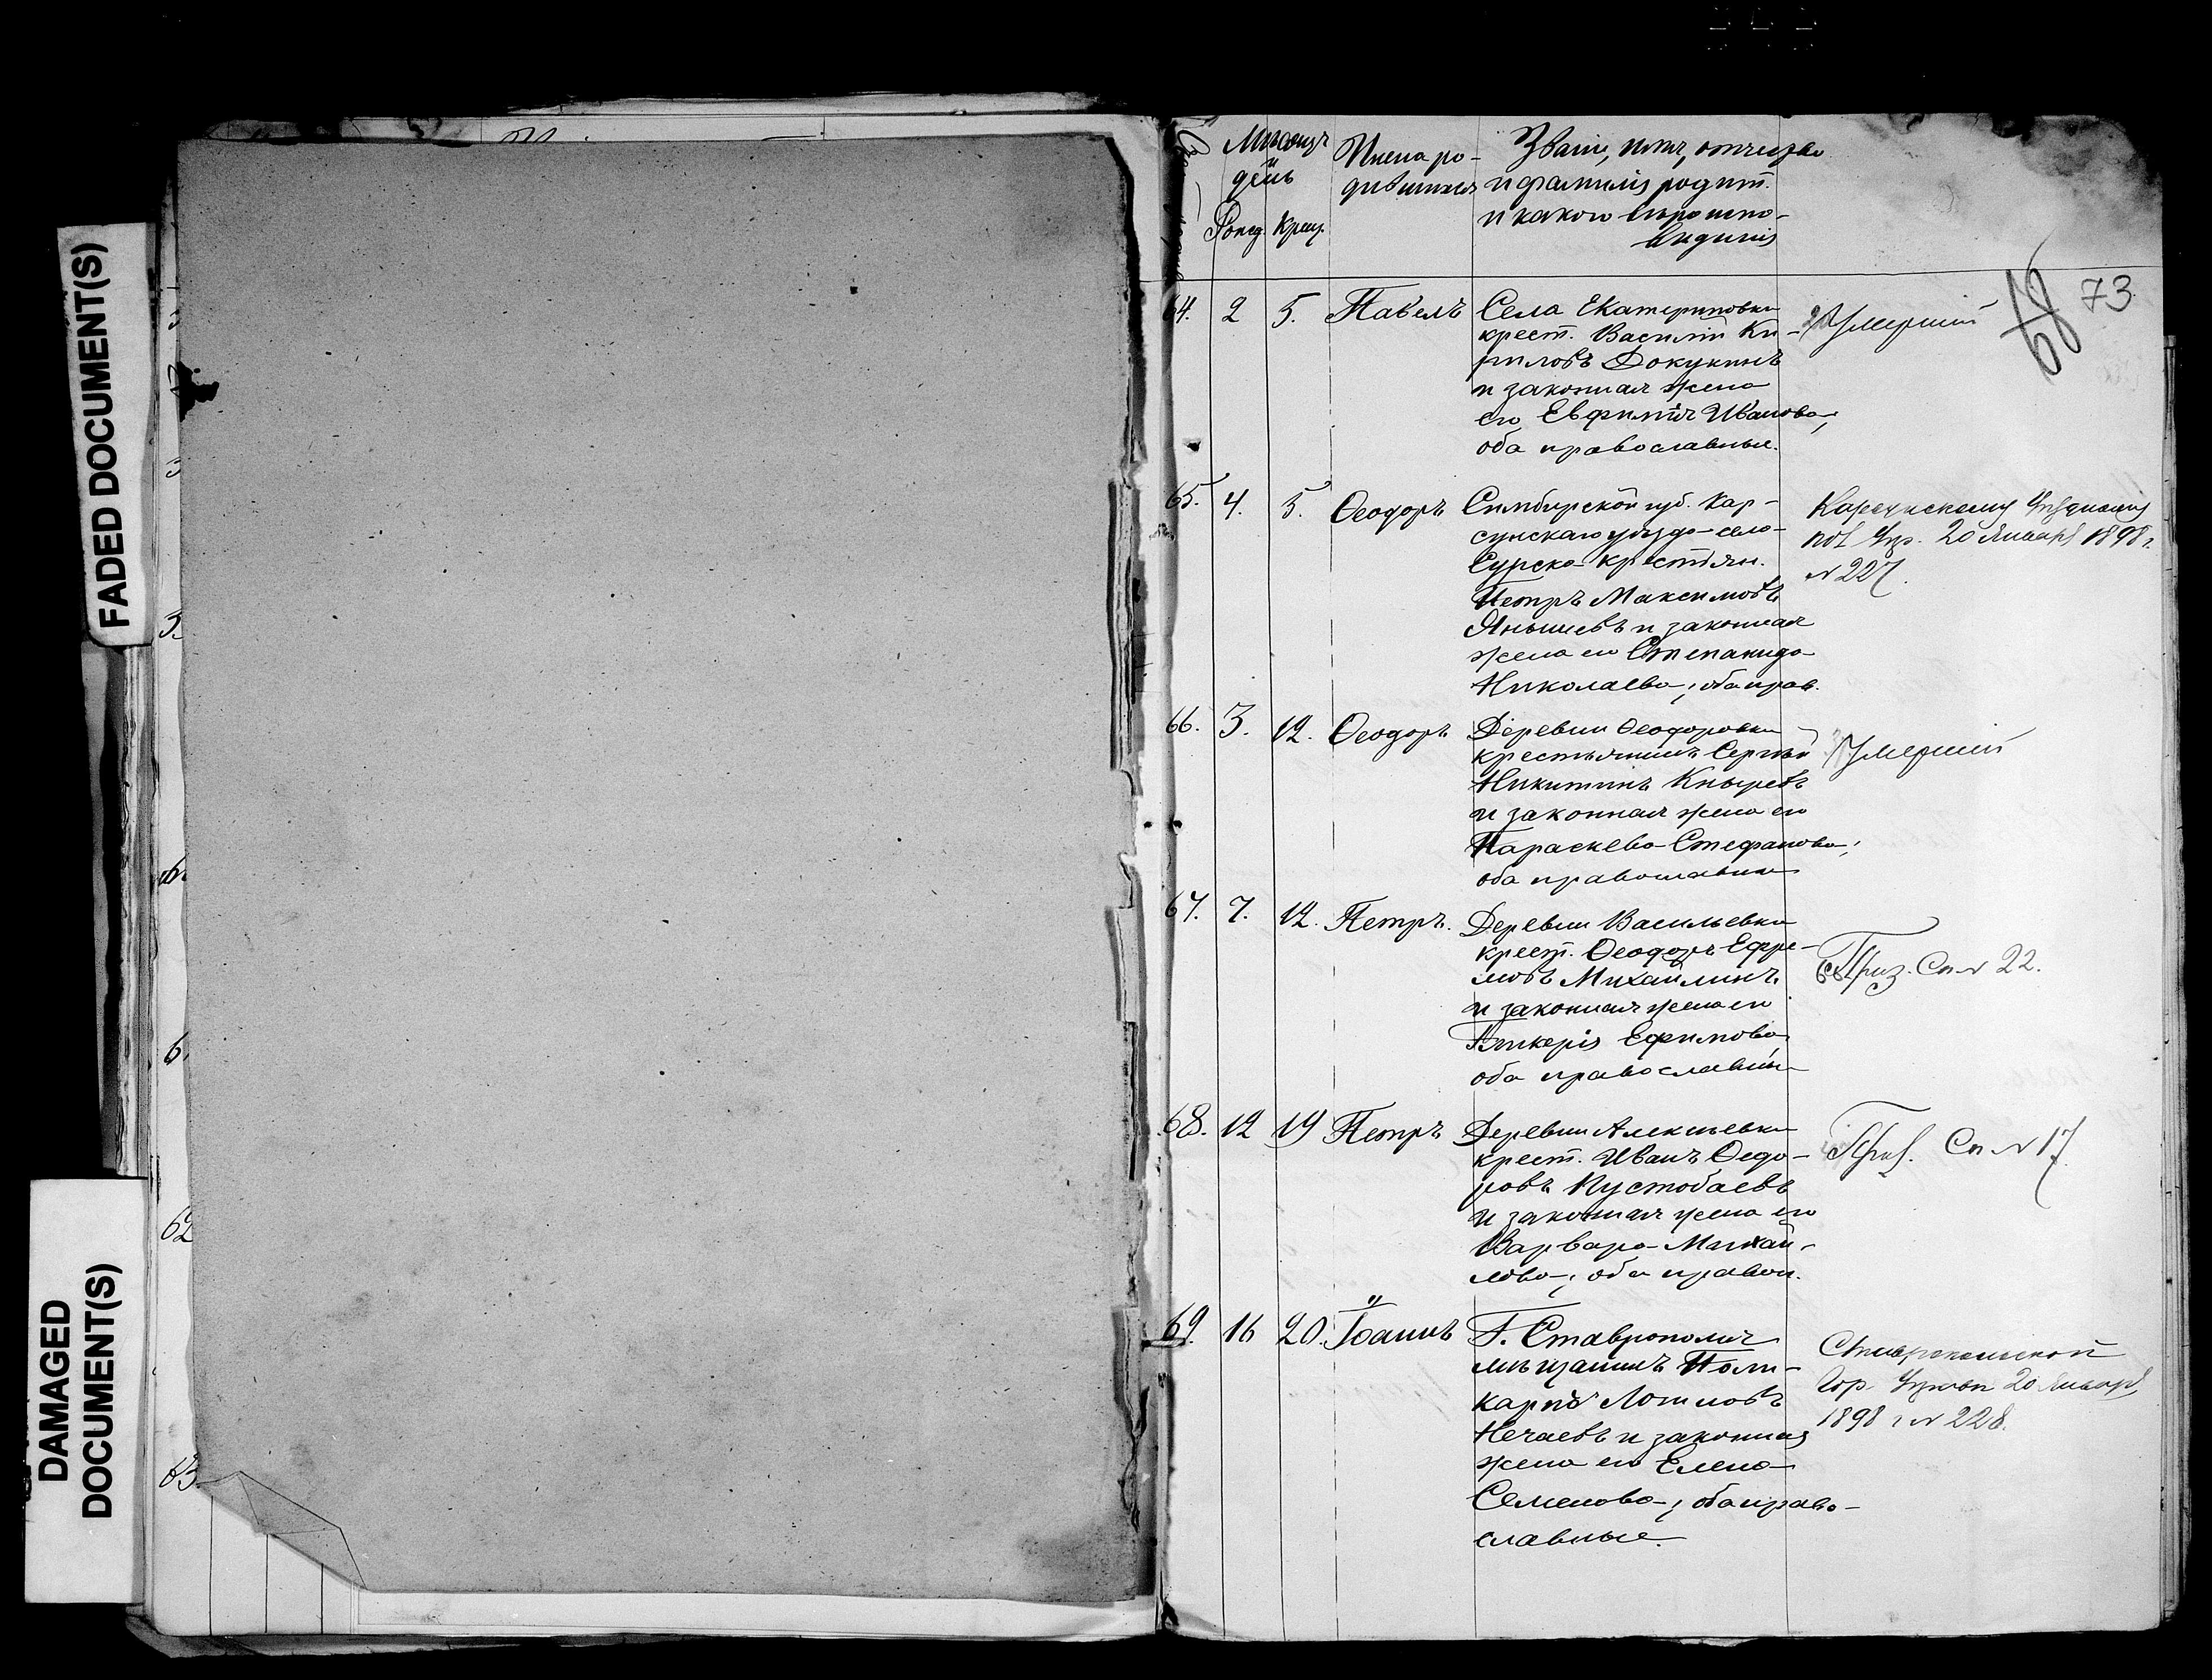 FADED DOCUMENT(S)
DAMAGED
DOCUMENT(S)
Мѣсяцъ
и
день
Рожд. Крещ.
Имена ро-
дившихся
Званіе, имя, отчество
и фамилія родит.
и какого вѣроиспо-
вѣданія
68 73
64. 2 5. Павелъ Села Екатериновки
крест. Василій Ки-
риловъ Докукинъ
и законная жена
его Евфимія Иванова;
оба православные.
Умершій
65. 4. 5. Ѳеодоръ Симбирской губ. Кар-
сунскаго уѣзда села
Сурска крестьян.
Петръ Максимовъ
Янышевъ и законная
жена его Степанида
Николаева; оба прав.
Карсунскому Уѣздному
по Упр. 20 Января 1898 г.
№ 227.
66. 3. 12. Ѳеодоръ Деревни Ѳеодоровки
крестьянинъ Сергѣй
Никитинъ Кныревъ
и законная жена его
Параскева Стефанова;
оба православные
Умершій
67. 7. 12. Петръ. Деревни Васильевки
крест. Ѳеодоръ Ефре-
мовъ Михайлинъ
и законная жена его
Гликерія Ефимова
оба православны
Приз. Сп № 22.
68. 12 19 Петръ Деревни Алексѣевки
крест. Иванъ Ѳедо-
ровъ Кустобаевъ
и законная жена его
Варвара Михай-
лова; оба правосл.
Приз. Сп № 17.
69. 16 20. Іоаннъ Г. Ставрополя
мѣщанинъ Поли-
карпъ Логиновъ
Нечаевъ и законная
жена его Елена
Семенова; оба право-
славные.
Ставропольской
Гор. Управы 20 Января
1898 г № 228.